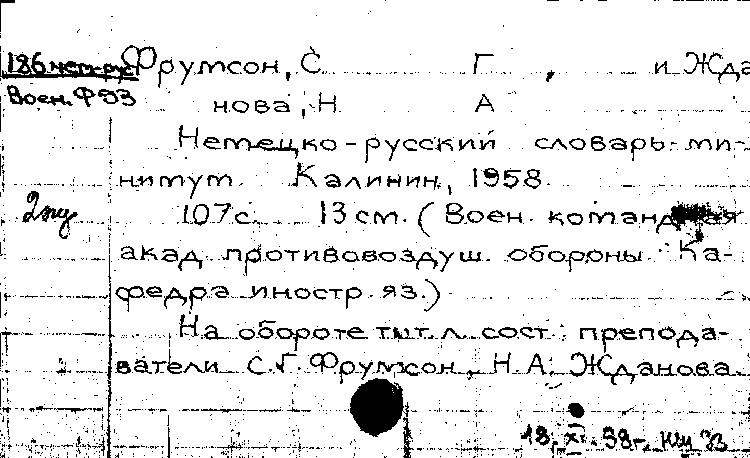 186 нем-рус Фрумсон, С Г , и Жда
Воен. Ф93 нова, Н А
Немецко-русский словарь-ми-
нимум. Калинин, 1958.
107 с. 13 см. (Воен. командная
акад. противовоздуш. обороны. Ка-
федра иностр. яз.)
На обороте тит. л. сост.: препода-
ватели С.Г. Фрумсон, Н.А. Жданова.
18.XI.58г.